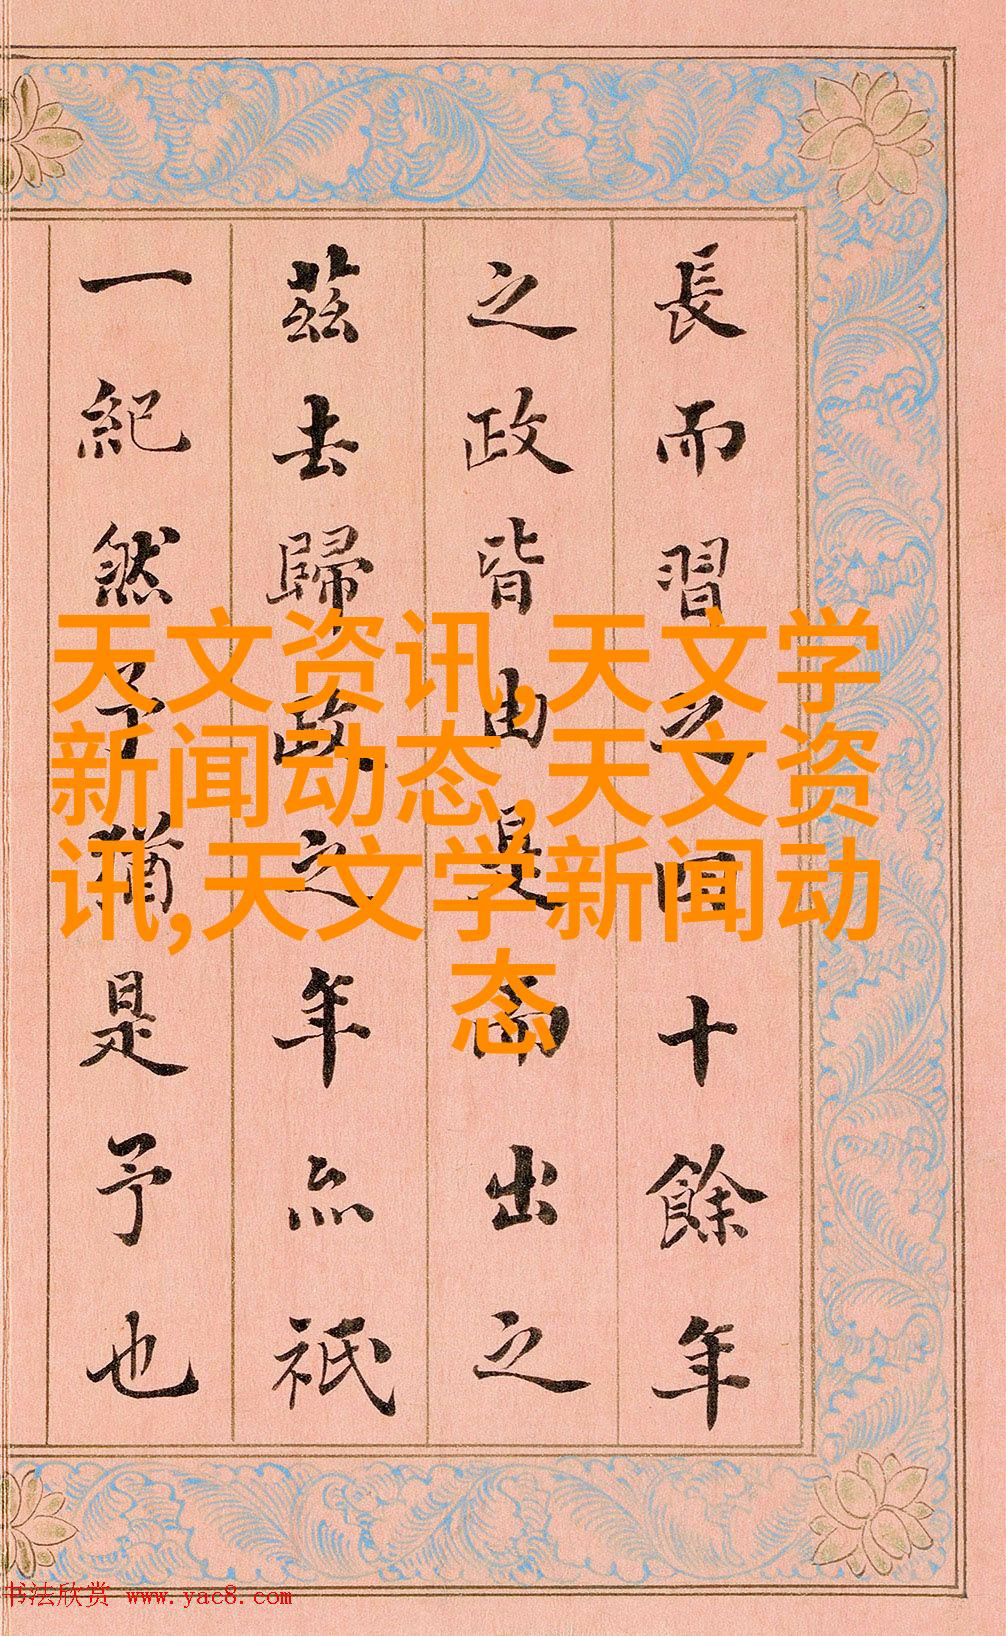 長而習之四十餘年
之政皆由是而出之
茲去歸政之年亦祇
一紀然予猶是予也
天文资讯,天文学
新闻动态,天文资
讯,天文学新闻动
态
书法欣赏 www.yac8.com